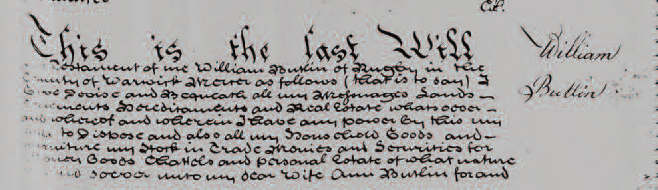 This is the last Will
Testament of me William Butlin of Rugby in the
County of Warwick Mercer as follows (that is to say) I
Give Devise and Bequeath all my Messuages Lands
Tenements Hereditaments and Real Estate whatsoever
and whereof and wherein I have any power by this my
to Dispose and also all my Household Goods and
Furniture my Stock in Trade Monies and Securities for
Money Goods Chattels and personal Estate of what nature
soever unto my dear Wife Ann Butlin for and
William
Butlin